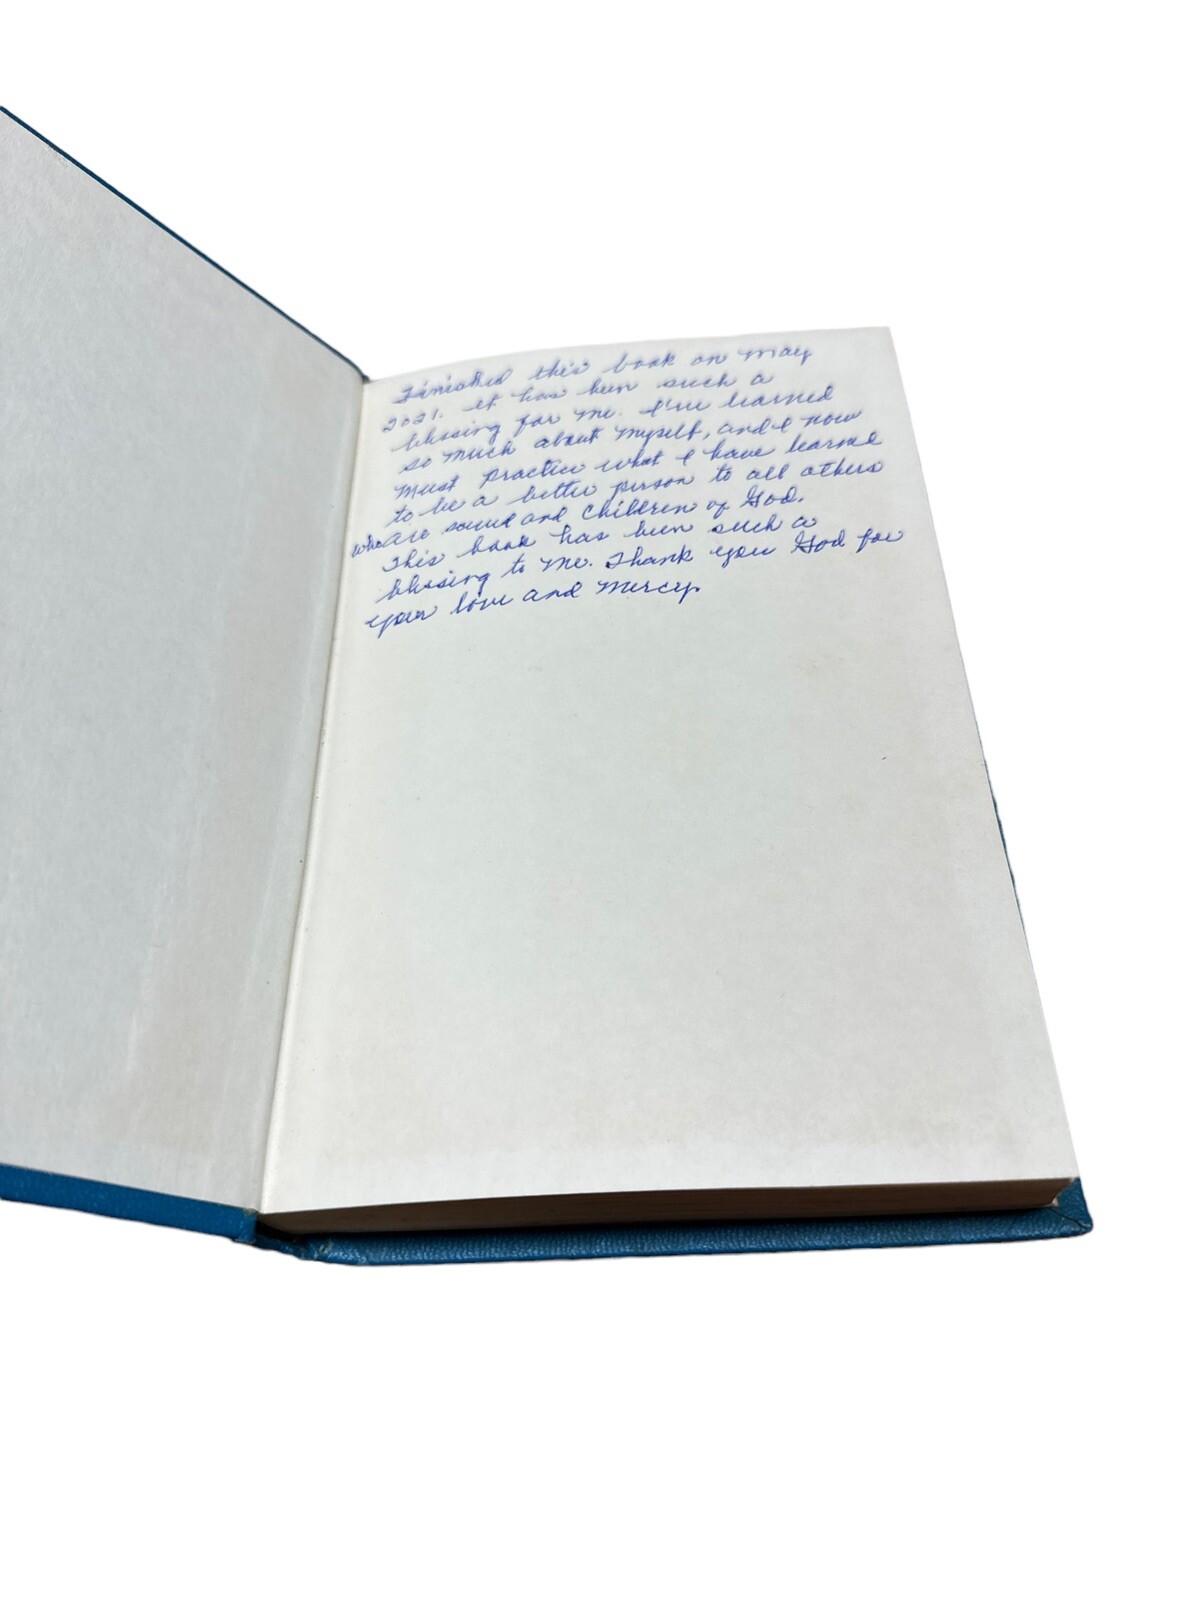 Finished this book on May
2021. It has been such a
blessing for me. I've learned
so much about myself, and I now
must practice what I have learned
to be a better person to all others
who are and children of God.
This book has been such a
blessing to me. Thank you God for
your love and mercy.